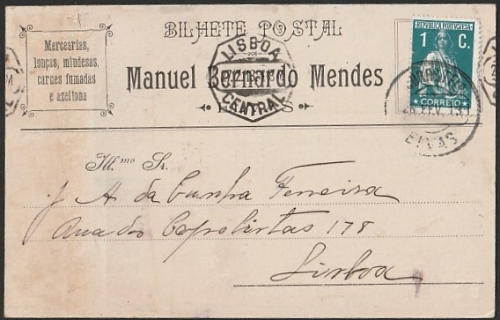 BILHETE POSTAL
Mercearias,
louças, miudesas,
carnes fumadas
e azeitona
Manuel Bernardo Mendes
LISBOA
CENTRAL
REPUBLICA PORTUGUESA
1 C.
CORREIO
ELVAS
Ill.mo Sr.
J A da Cunha Ferreira
Rua dos Capelistas 178
Lisboa